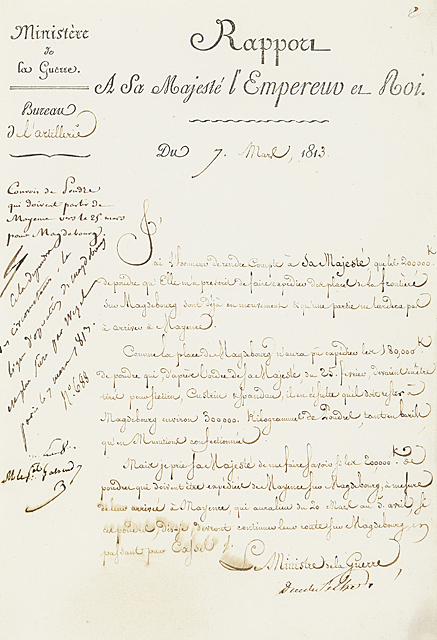 2
Ministère
de
la Guerre.
Bureau
de l'artillerie
Rapport
A Sa Majesté l'Empereur et Roi.
Du 7. Mars, 1813
Convois de Poudre
qui doivent partir de
Mayence vers le 25 mars
pour Magdebourg.
paris le 7 mars 1813.
N° 688
J'ai l'honneur de rendre Compte à Sa Majesté que les 200000 K
de poudre qu'Elle m'a prescrit de faire expédier des places de la frontière
sur Magdebourg sont déjà en mouvement & qu'une partie ne tardera pas
à arriver à Mayence.
Comme la place de Magdebourg n'aura pu expédier les 180,000 K
de poudre qui, d'après l'ordre de Sa Majesté du 25. février, devaient être
tirés pour Stettin, Custrin & Spandau, il en résulte qu'il doit rester à
Magdebourg environ 300000. Kilogrammes de Poudre, tant en baril
qu'en Munitions confectionnées.
Mais je prie Sa Majesté de me faire savoir si les 200000 K de
poudre qui doivent être expédiés de Mayence sur Magdebourg, à mesure
de leur arrivée à Mayence, qui aura lieu du 20 Mars au 5 avril, si
ces poudres, dis-je, devront continuer leur route sur Magdebourg, en
passant par Cassel.
Le Ministre de la Guerre,